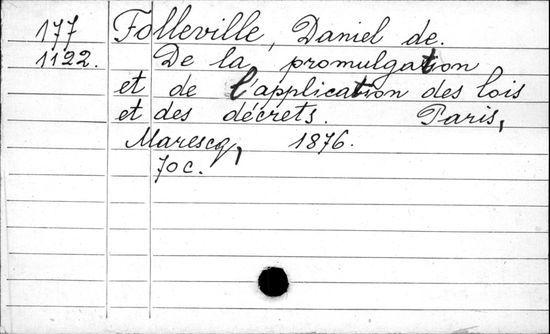 177 Folleville, Daniel de.
1122. De la promulgation
et de l'application des lois
et des décrets. Paris,
Marescq, 1876.
70 c.